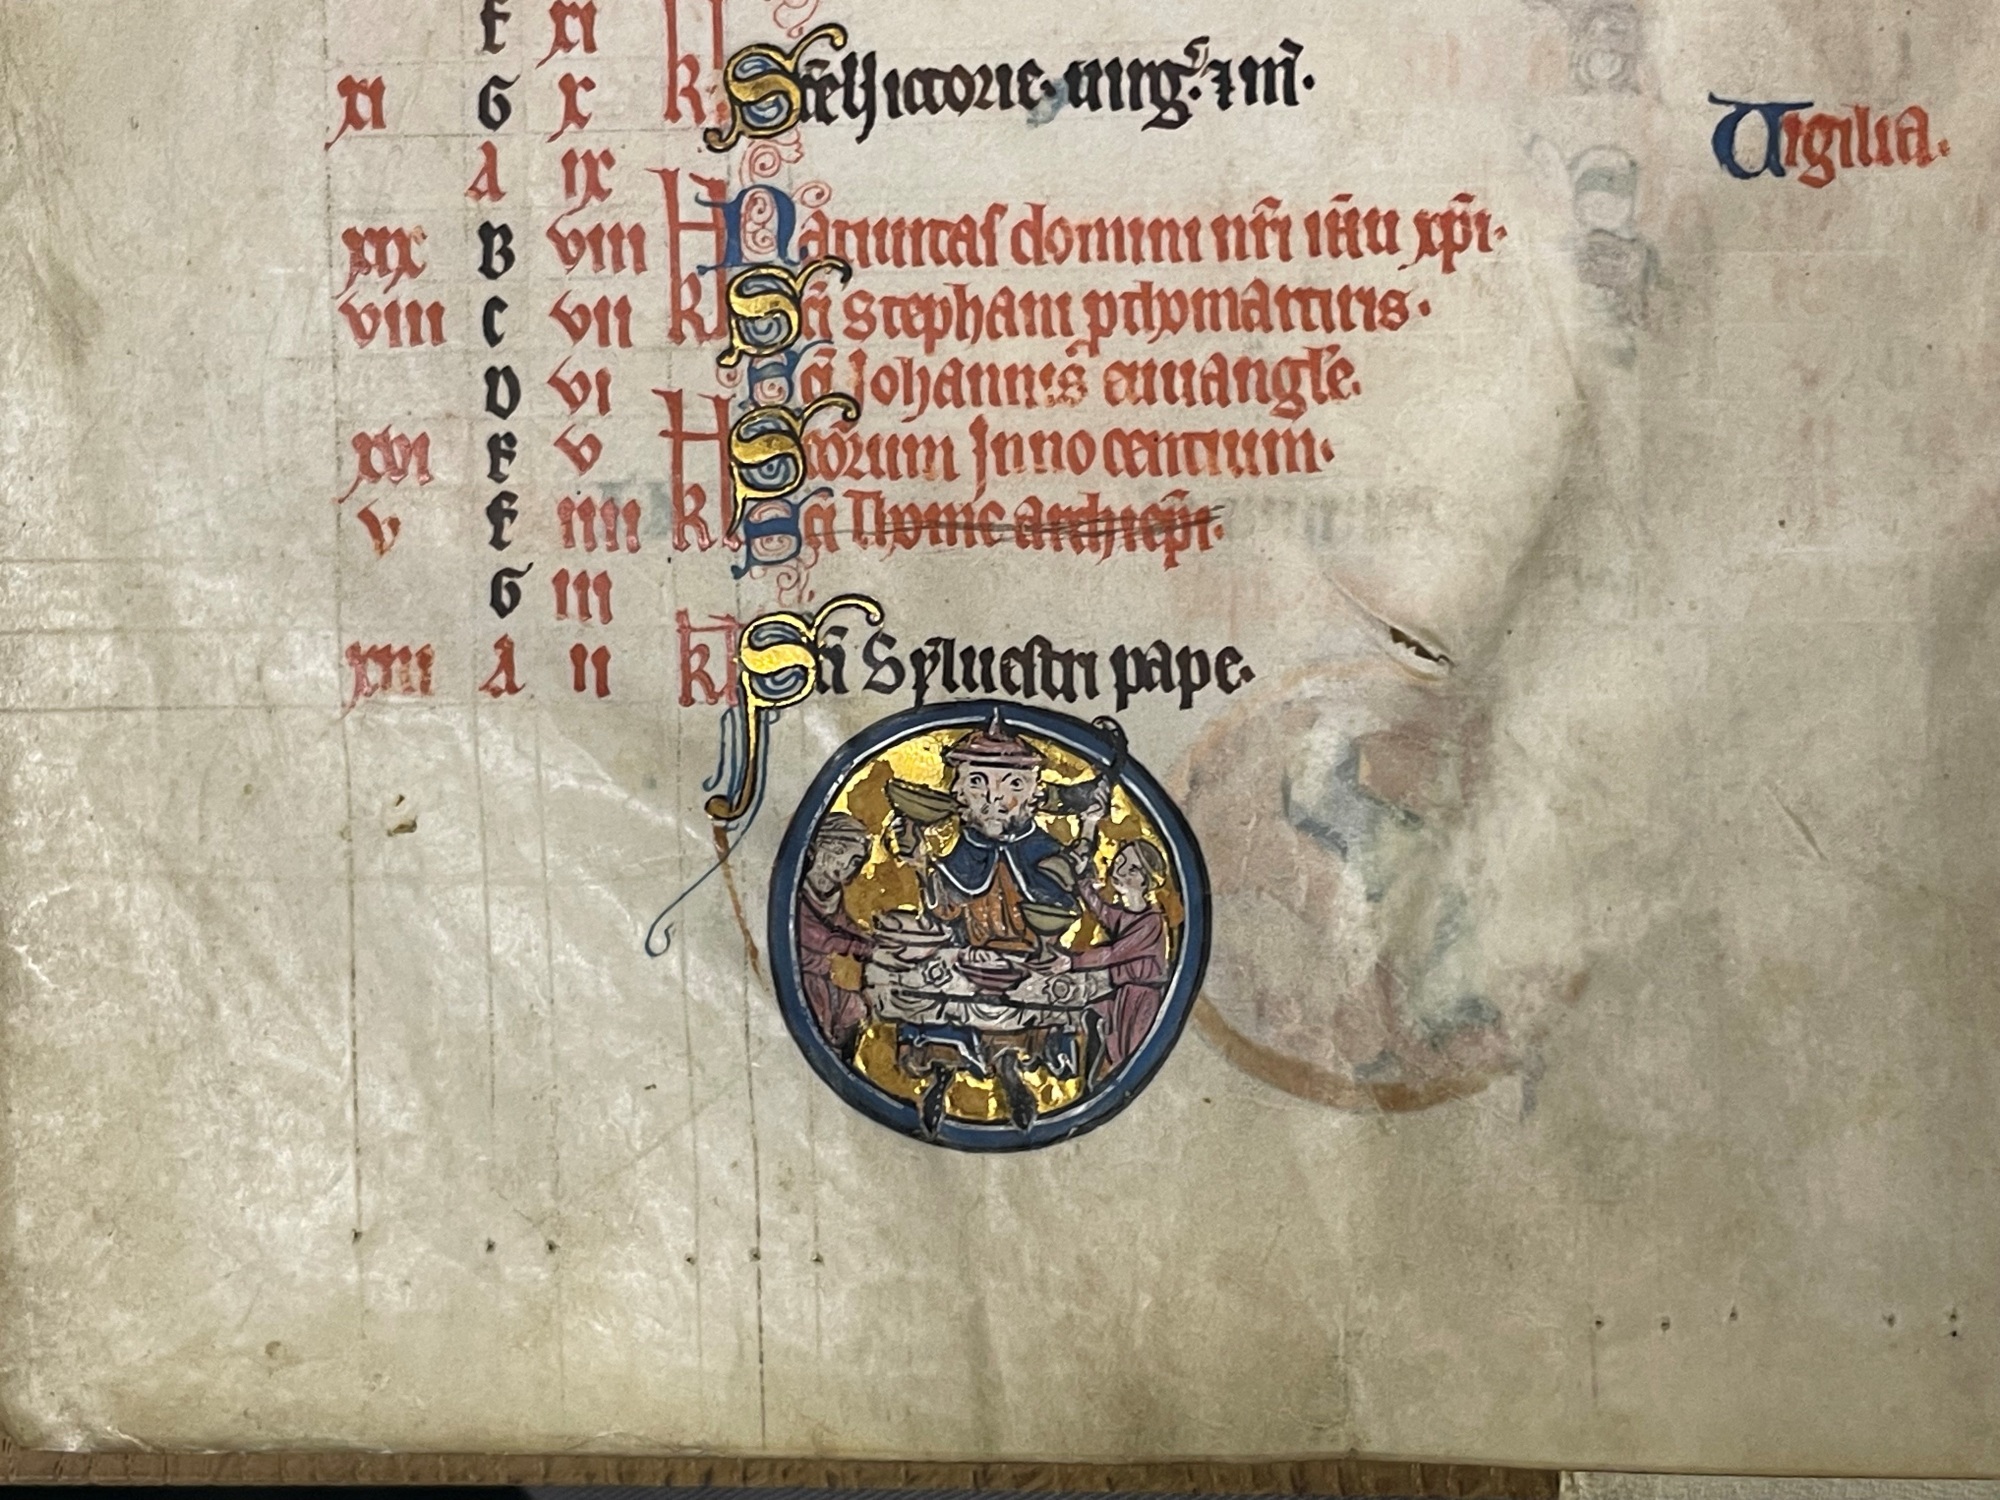 F xi
xi G x kl Sc̄e Victorie. uirg̃. ⁊ m̄.
A ix Vigilia.
xix B viii kl Natiuitas domini nr̄i ih̄u xp̄i.
viii C vii kl Sc̄i Stephani pthomartiris.
D vi Sc̄i Johannis euuangl̄e.
xvi E v kl Scōrum Innocentium.
v F iiii kl Sc̄i Thome archiep̄i.
G iii
xiii A ii kl Sc̄i Syluestri pape.